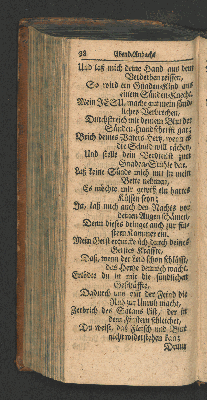 98 Abend-Andacht
Und laß mich deine Hand aus dem
Verderben reissen,
So wird ein Gnaden-Kind aus
einem Sünden-Knecht.
Mein JESU, mache gut mein sünd-
liches Verbrechen,
Durchstreich mit deinem Blut der
Sünden-Handschrifft gar;
Brich deines Vaters Hertz, wenn er
die Schuld will rächen,
Und stelle dein Verdienst zum
Gnaden-Stuhle dar.
Laß keine Sünde mich mit in mein
Bette nehmen,
Es möchte mir gewiß ein hartes
Küssen seyn;
Ja, laß mich auch den Nachts vor
deinen Augen schämen,
Denn dieses dringet auch zur fin-
stern Kammer ein.
Mein Geist ermuntre sich durch deines
Geistes Kräffte,
Daß, wenn der Leib schon schläfft,
das Hertze dennoch wacht.
Ertödte du in mir die sündlichen
Geschäffte,
Dadurch uns nur der Feind die
Ruh zur Unruh macht.
Zerbrich des Satans List, der
im finstern schleichet,
Du weist, daß Fleisch und Blut
nicht widerstehen kan;
Wenn